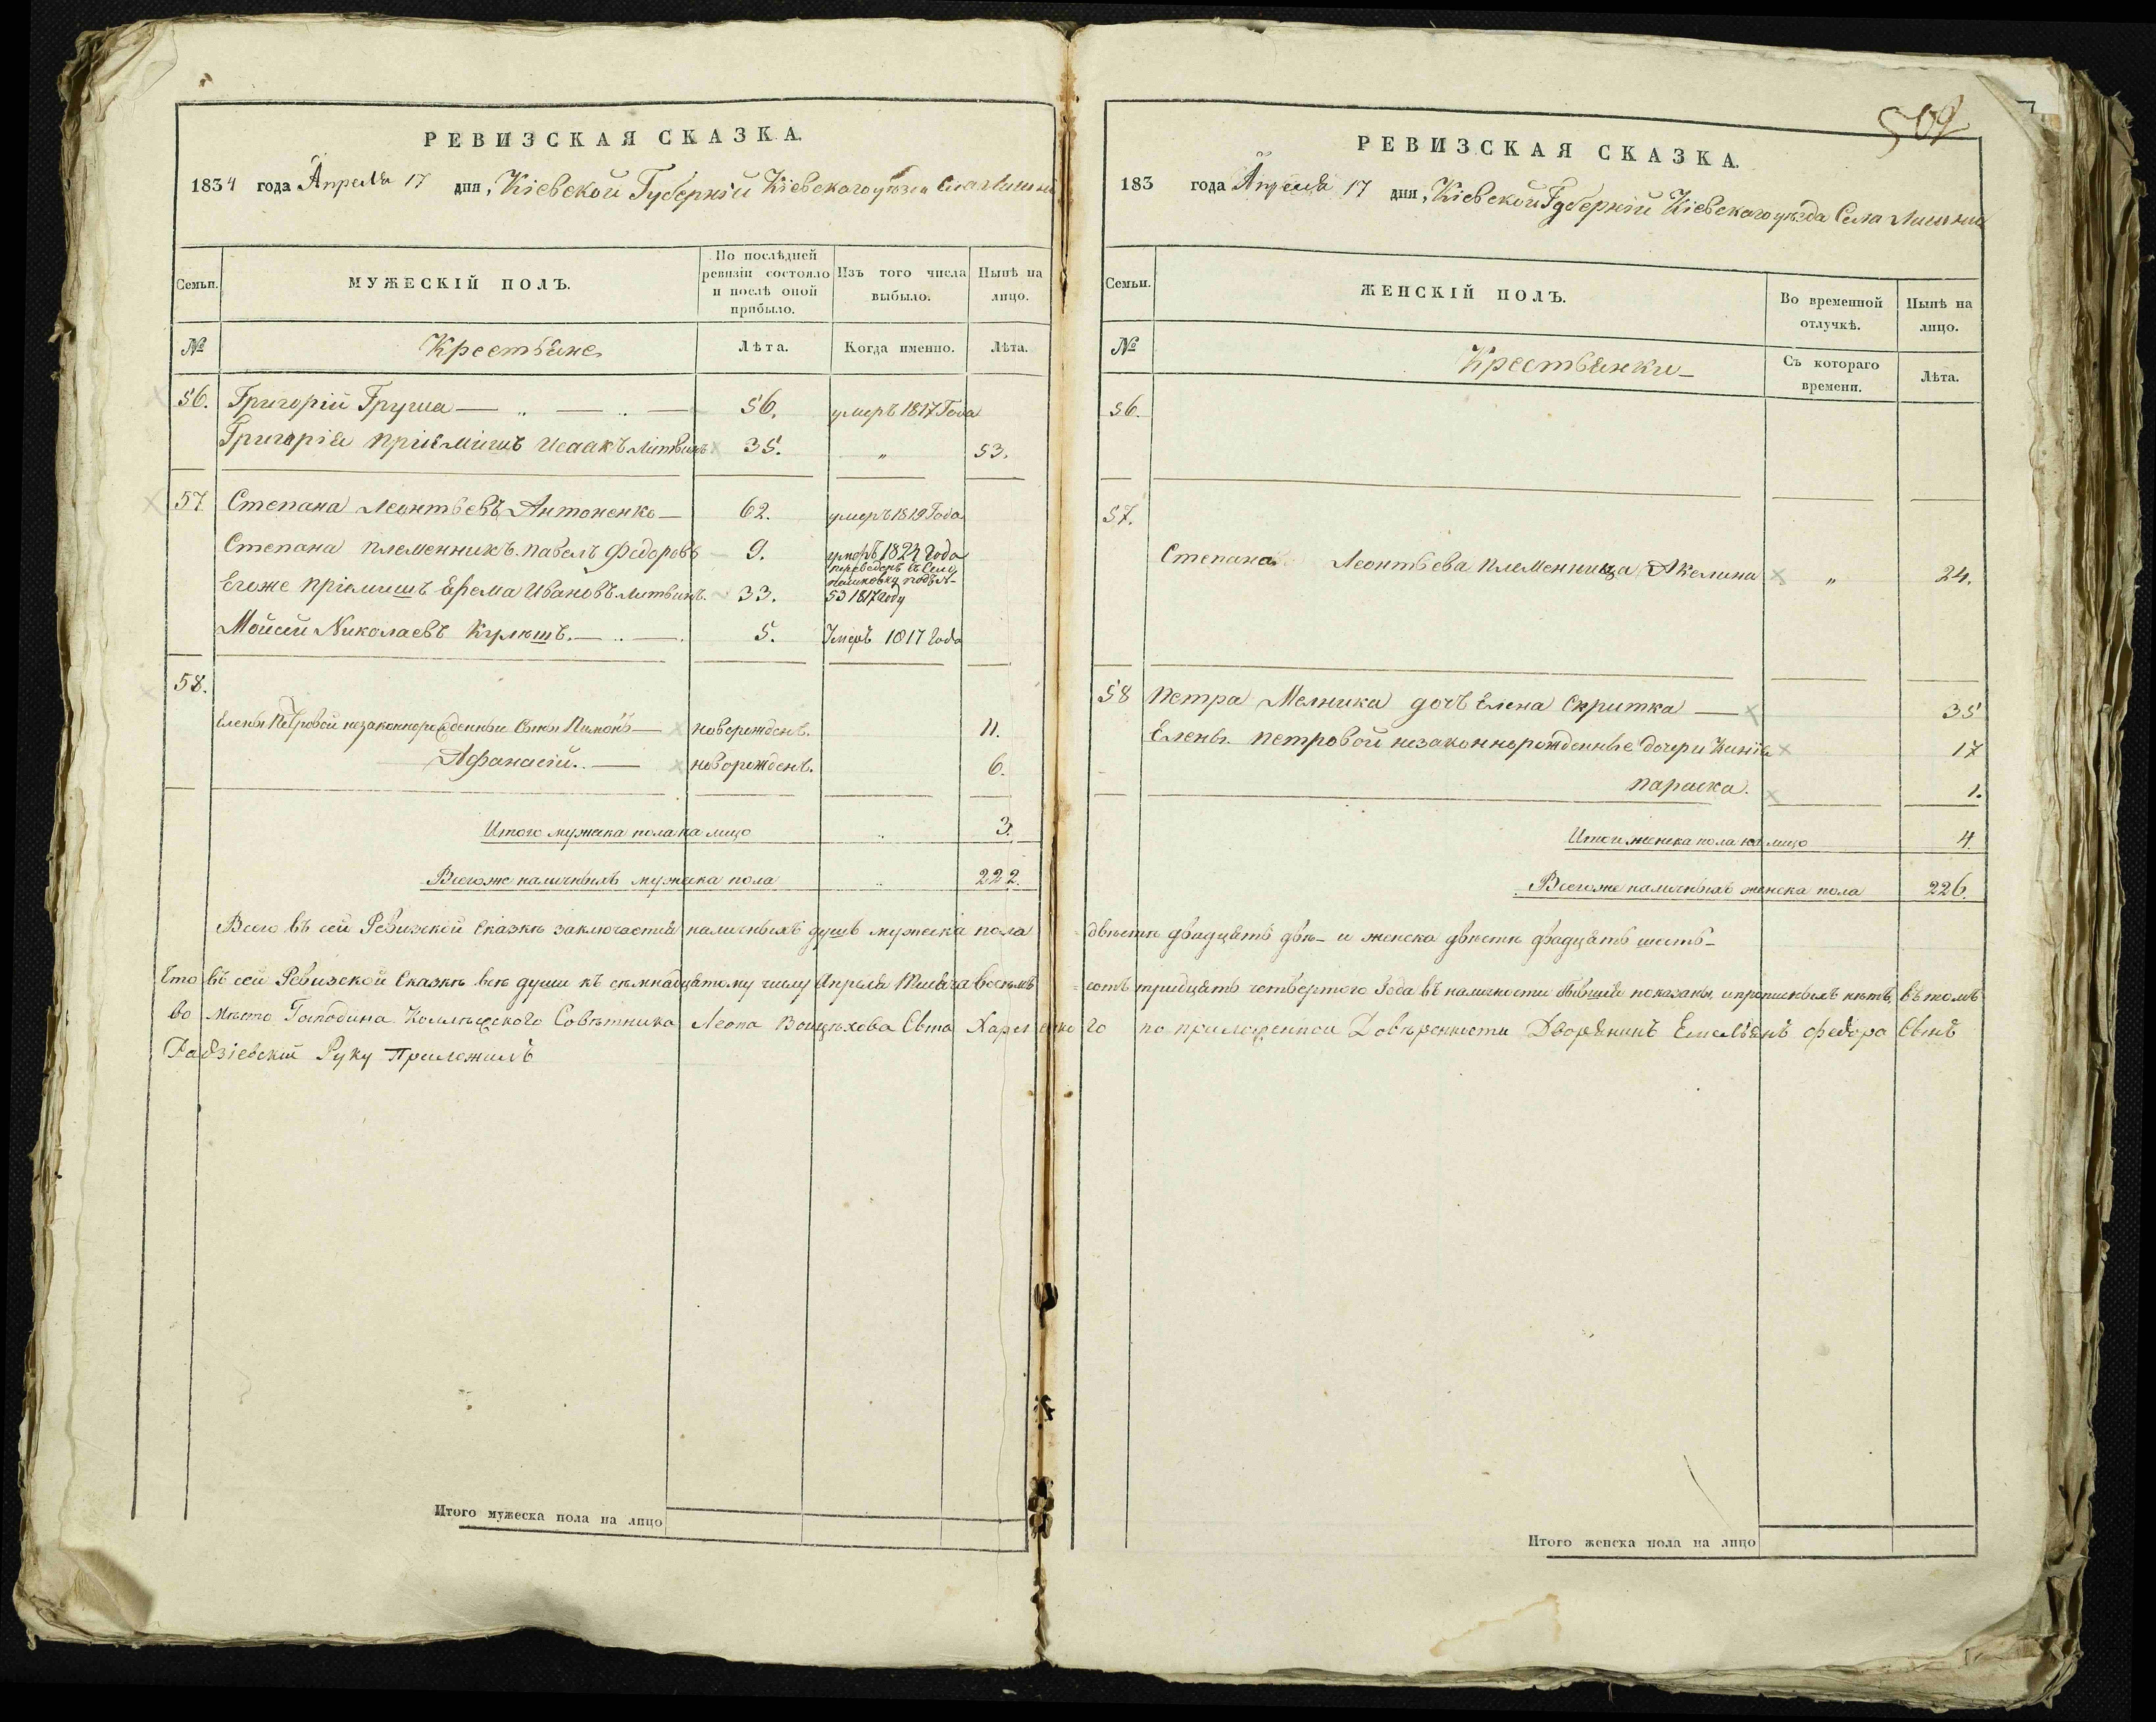 РЕВИЗСКАЯ СКАЗКА.
1834 года Апреля 17 дня, Кіевской Губерніи Кіевского уѣзда Села
Семьи. МУЖЕСКІЙ ПОЛЪ. По послѣдней ревизіи состояло и послѣ оной прибыло. Изъ того числа выбыло. Нынѣ на лицо.
№ Крестьяне Лѣта. Когда именно. Лѣта.
56. Григорій Груша — „ — „ — 56. умеръ 1817 Года
Григорія пріемишъ Исаакъ Литвинъ 35. „ 53.
57 Степана Леонтьевъ Антоненко — 62. умеръ 1819 Года
Степана племенникъ павелъ Федоровъ 9. умеръ 1824 Года
Егоже пріемишъ Ерема Ивановъ Литвинъ. 33. переведенъ въ Село подъ №
53 1817 Году
Мойсей Николаевъ — „ — 5. Умеръ 1817 Года
58.
Елены Петровой незаконнорожденные Сыны — новорожденъ. 11.
Афанасій. — новорожденъ. 6.
Итого мужска пола на лицо „ 3.
Всегоже наличныхъ мужеска пола „ 222.
Всего въ сей Ревизской Сказкѣ заключается наличныхъ душъ мужеска пола
Что въ сей Ревизской Сказкѣ всѣ души къ семнадцатому числу Апреля Тысяча восемь
во мѣсто Господина Совѣтника Леона Сына
Руку Приложилъ
Итого мужеска пола на лицо
509
РЕВИЗСКАЯ СКАЗКА.
183 года Апреля 17 дня, Кіевской Губерніи Кіевского уѣзда Села
Семьи. ЖЕНСКІЙ ПОЛЪ. Во временной отлучкѣ. Нынѣ на лицо.
№ Крестьянки Съ котораго времени. Лѣта.
56.
57.
Степана Леонтьева племенница Акелина „ 24.
58 Петра Мелника дочь Елена Скритка — 35
Елены петровой незаконнорожденные дочери 17
параска. 1.
Итого женска пола на лицо 4.
Всегоже наличныхъ женска пола 226.
двѣстѣ двадцать двѣ — и женска двѣстѣ двадцать шесть —
сотъ тридцать четвертого Года въ наличности бывшія показаны, и прописныхъ нѣтъ, въ томъ
по приложенной Довѣренности Дворянинъ Емельянъ Федора Сынъ
Итого женска пола на лицо